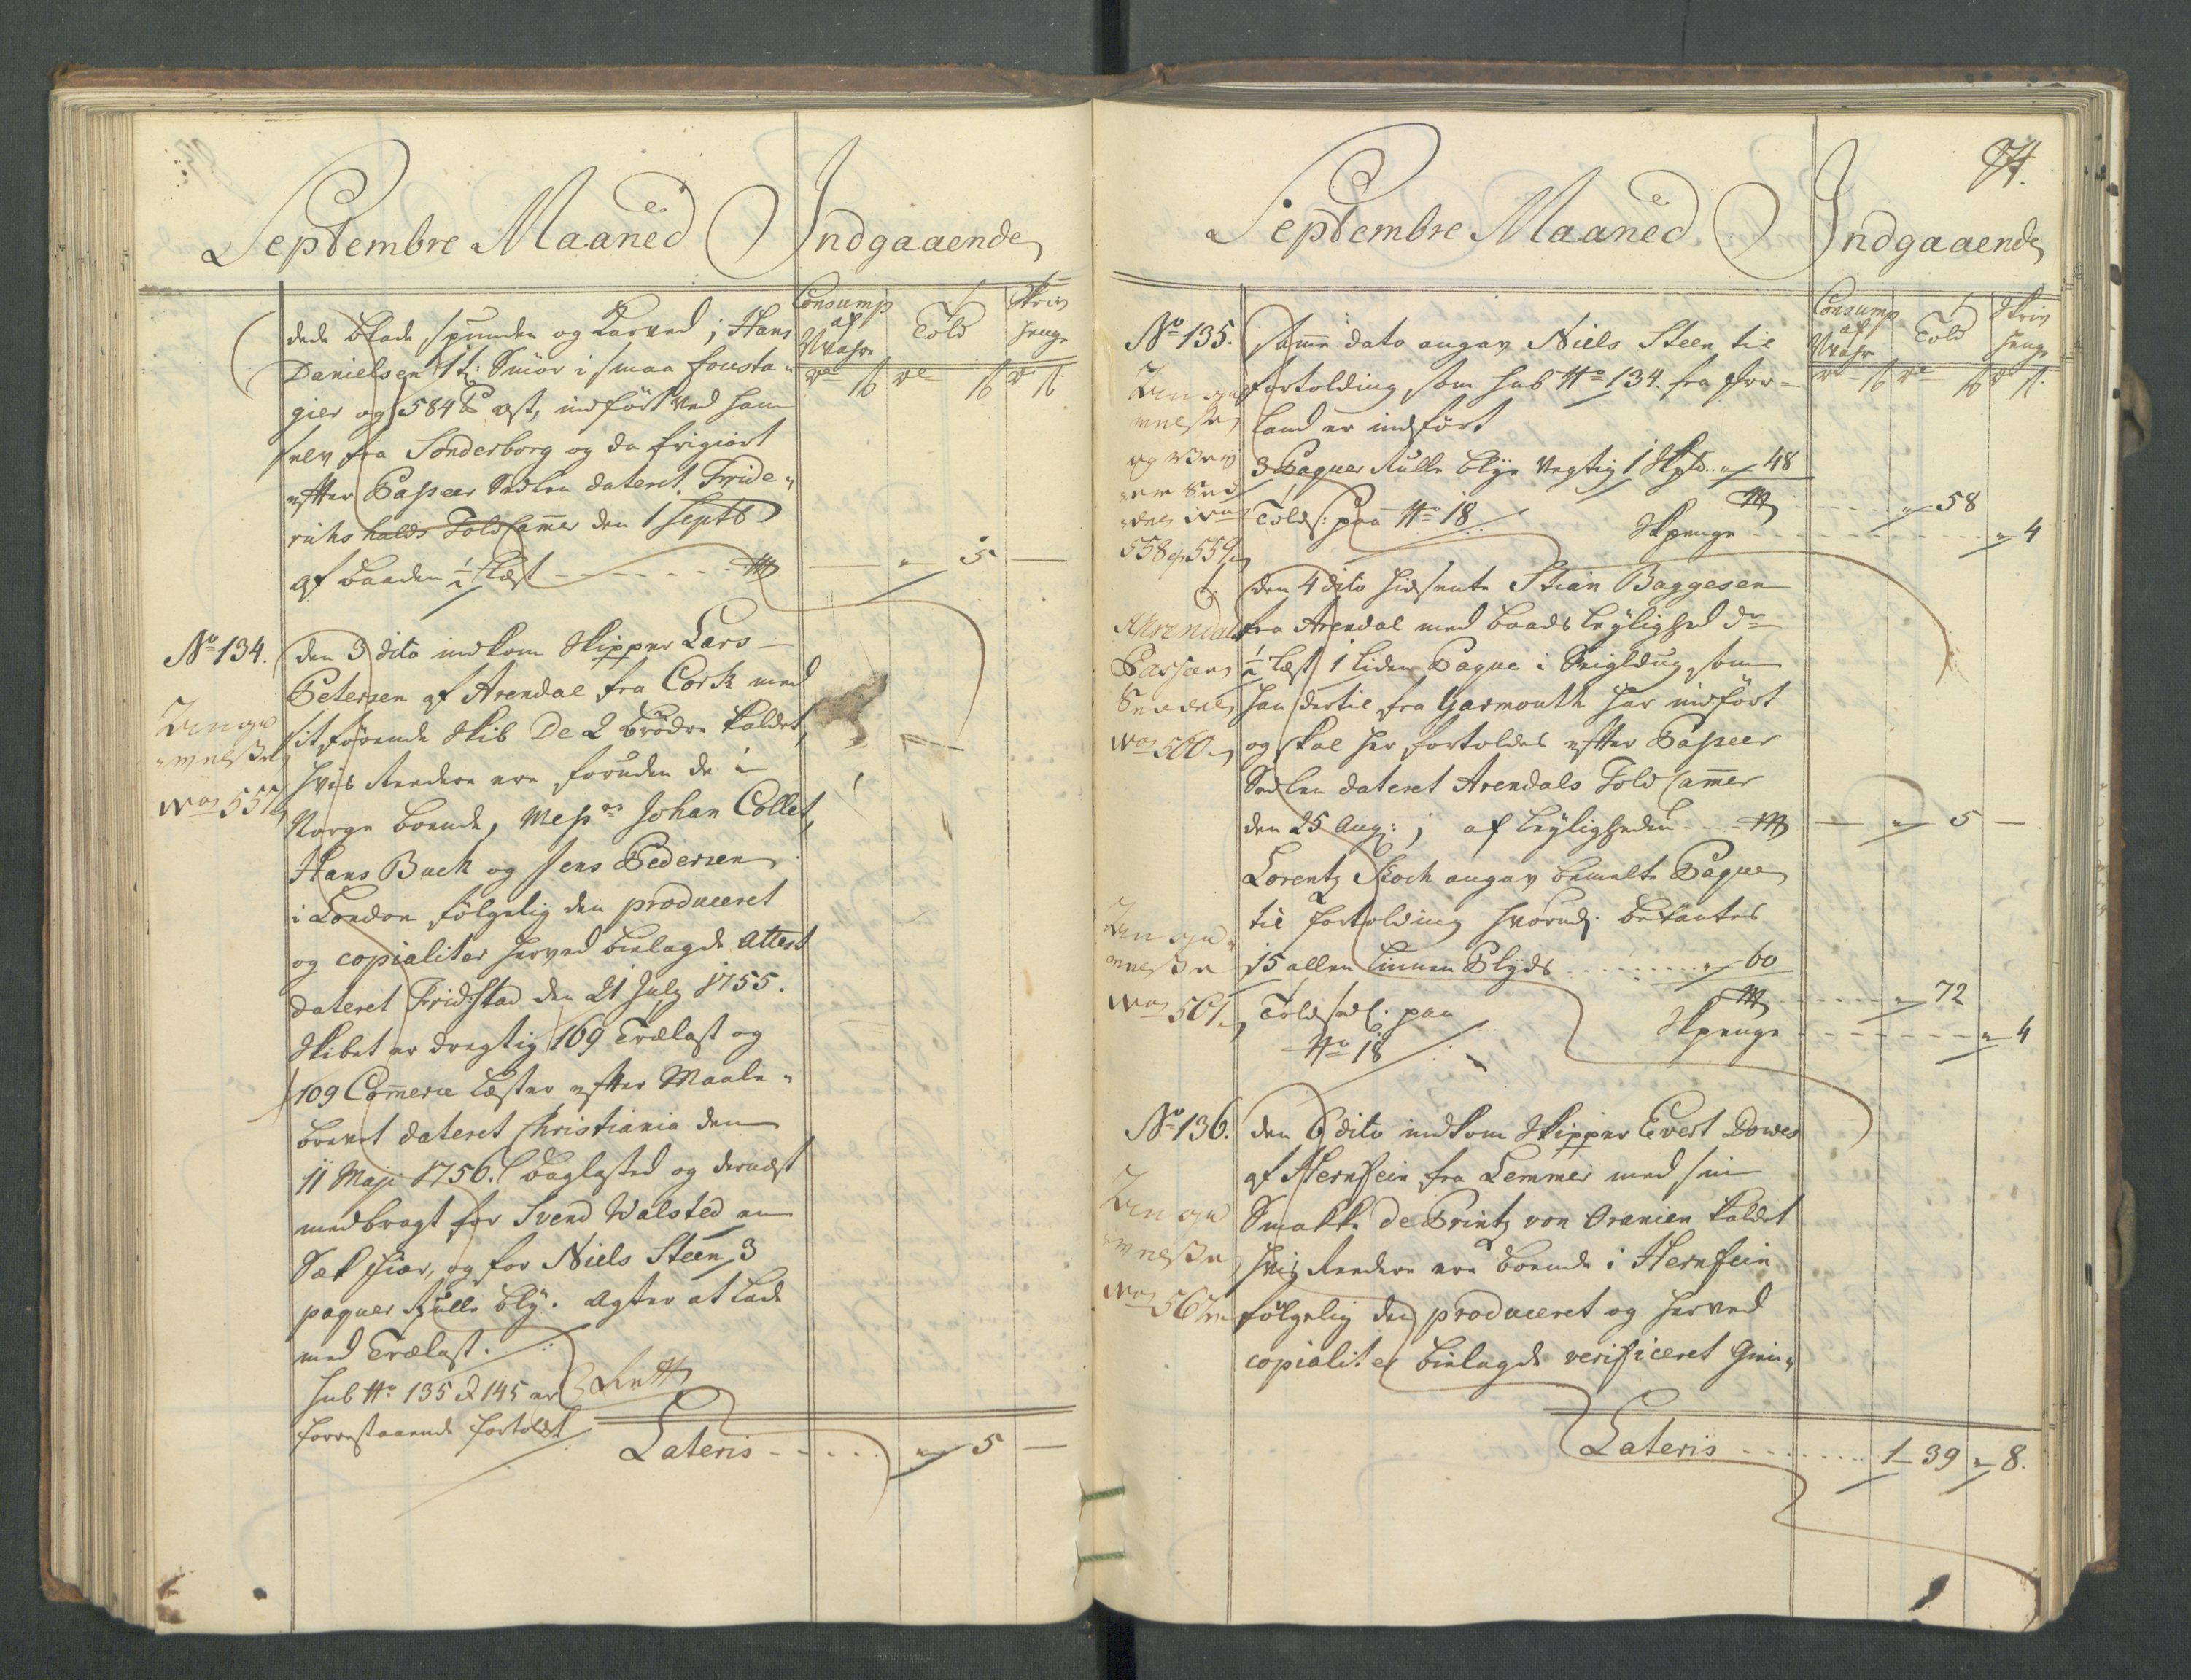 Septembre Maaned Indgaaende
Consump
af
Told
Skriv
penge
rdr ß rdr ß r ß
dede Lade spunden og Karved; Hans
Danielsen 1 t: Smör i smaa fousta-
gier og 584 lb ost, indfört ved ham
selv fra Sönderborg og da frigiort
efter Passeer Sedlen dateret Fride-
richs halds Told Camer den 1 Septb
af baaden ½ Læst - - - - - 5 -
No 134.
den 3 dito indkom Skipper Lars
Petersen af Arendal fra Cork med
sit förende Skib De 2 Brödre kaldet,
hvis Reedere ere foruden de i
Norge boende, Messrs Johan Collet,
Hans Buch og Jens Pedersen
i London fölgelig den produceret
og copialiter herved bielagde Attest
dateret Fridstad den 21 July 1755.
Skibet er drægtig 169 Trælast og
109 Commerce Læster efter Maale-
brevet dateret Christiania den
11 Maji 1756. Baglasted og dernæst
medbragt for Svend Walsted en
Sæk fiær, og for Niels Steen 3
paquer Rulle bly. Agter at lade
med Trælast.
Sub No 135 & 145 er
forrestaaende fortoldet
No 557
Lateris - - - - 5 -
74.
Septembre Maaned Indgaaende
Consump
af
Told
Skriv
penge
rdr ß rdr ß r ß
No 135.
Samme dato angav Niels Steen til
fortolding som sub No 134. fra Ir-
land er indfört
3 Paquer Rulle blye vegtig 1 Skpd - 48
58
Tolds: paa No 18
Skpenge - - - 4
558 og 559
den 4 dito hidsente Stian Baggesen
fra Arendal med baads leylighed dr
½ Læst 1 liden Paque i Seigldug, som
han dertil fra Yarmouth har indfört
og skal her fortoldes efter Passeer
Sedlen dateret Arendals Told Camer
den 25 Aug: ; af leyligheden - - - 5 -
Ahrendals
Passeer
Seedel
No 560
Lorentz Koch angav bemelte Paque
til fortolding hvorudj befantes
15 allen linnen Plyds - - - 60
72
Toldsedl. paa
No 18
Skpenge - - - 4
No 561
No 136.
den 6 dito indkom Skipper Evert Dowes
af Hernfein fra Lemmer med sin
Smakke de Printz von Oranien kaldet
hvis Reedere ere boende i Hernfein
fölgelig den produceret og herved
copialiter bielagde verificeret Gien-
No 562
Lateris - - - 1 - 39 - 8.